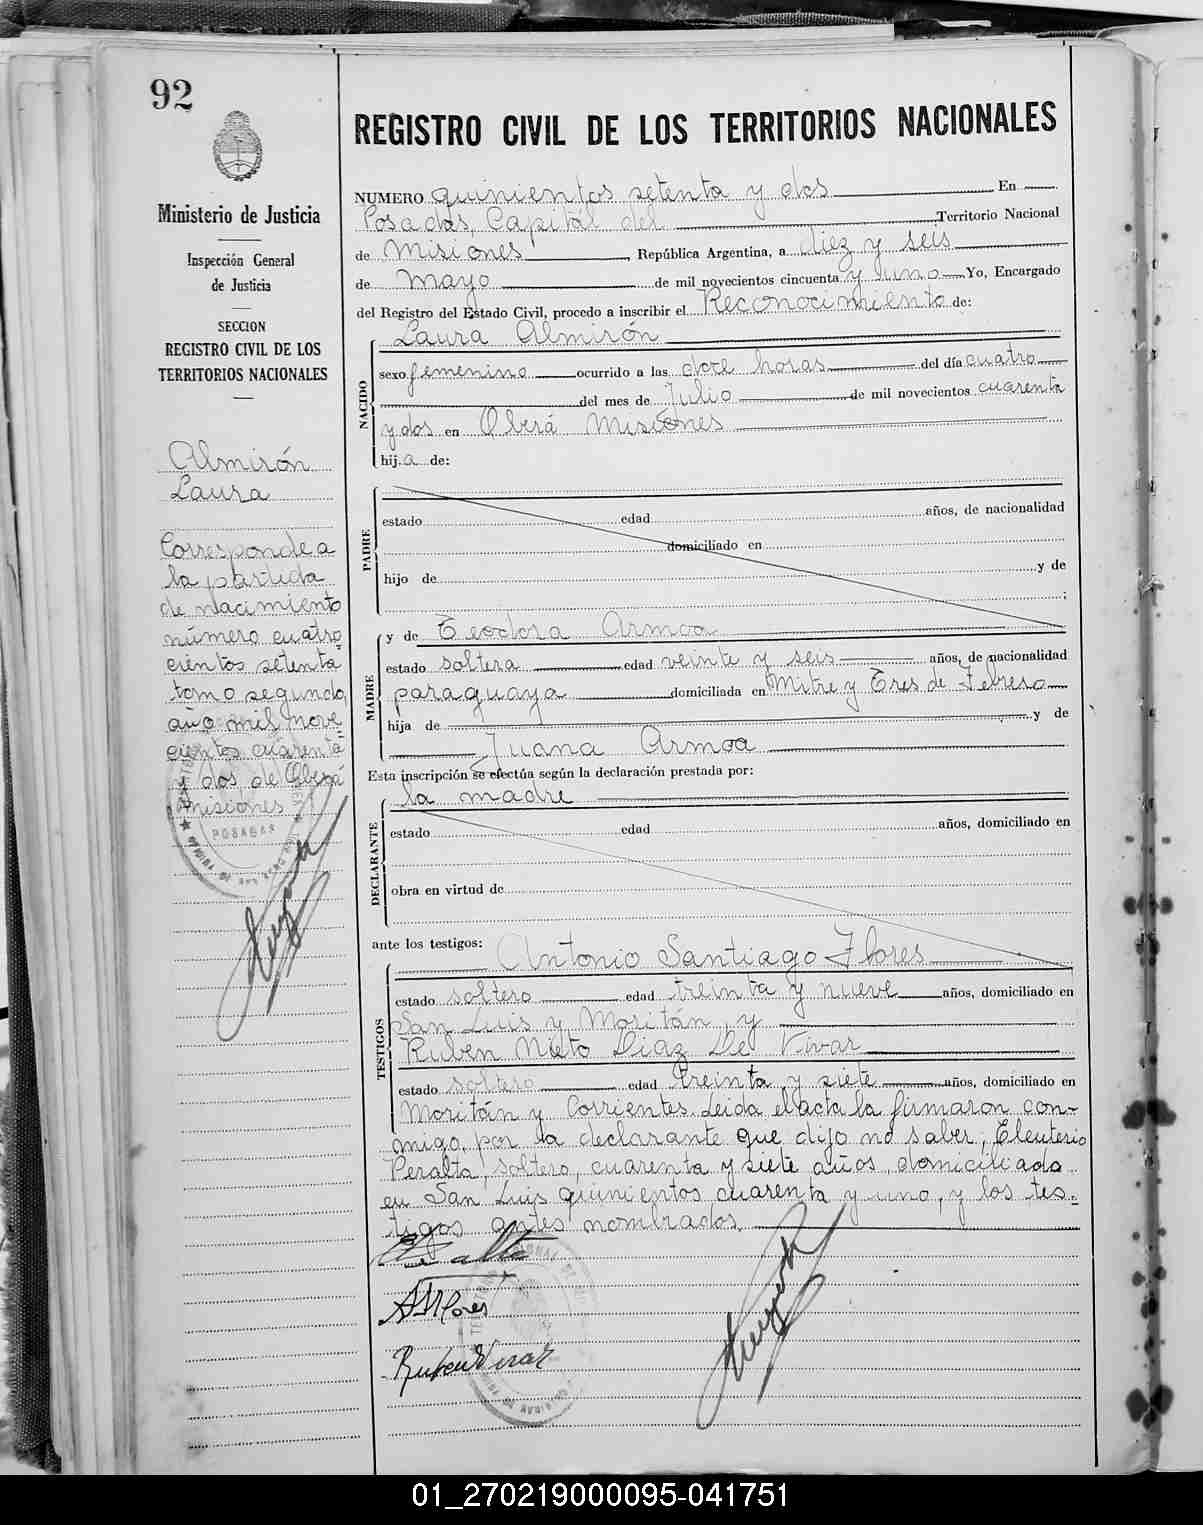 92
Ministerio de Justicia
Inspección General
de Justicia
SECCION
REGISTRO CIVIL DE LOS
TERRITORIOS NACIONALES
Almirón
Laura
Corresponde a
la partida
de nacimiento
número cuatro
cientos setenta
tomo segundo,
año mil nove
cientos cuarenta
y dos de Oberá
Misiones
POSADAS
REGISTRO CIVIL DE LOS TERRITORIOS NACIONALES
NUMERO quinientos setenta y dos En
Posadas, Capital del Territorio Nacional
de Misiones, República Argentina, a diez y seis
de mayo de mil novecientos cincuenta y uno Yo, Encargado
del Registro del Estado Civil, procedo a inscribir el Reconocimiento de:
Laura Almirón
NACIDO
sexo femenino ocurrido a las doce horas del día cuatro
del mes de Julio de mil novecientos cuarenta
y dos en Oberá Misiones
hija de:
PADRE
estado edad años, de nacionalidad
domiciliado en
hijo de y de
;
MADRE
y de Teodora Armoa
estado soltera edad veinte y seis años, de nacionalidad
paraguaya domiciliada en Mitre y Tres de Febrero
hija de y de
Juana Armoa
Esta inscripción se efectúa según la declaración prestada por:
la madre
DECLARANTE
estado edad años, domiciliado en
obra en virtud de
ante los testigos:
TESTIGOS
Antonio Santiago Flores
estado soltero edad treinta y nueve años, domiciliado en
San Luis y Moritán, y
Ruben Nieto Diaz De Vivar
estado soltero edad treinta y siete años, domiciliado en
Moritán y Corrientes. Leida el acta la firmaron con-
migo, por la declarante que dijo no saber, Eleuterio
Peralta, soltero, cuarenta y siete años, domiciliado
en San Luis quinientos cuarenta y uno, y los tes-
tigos antes nombrados.
ASFlores
Ruben Vivar
01_270219000095-041751